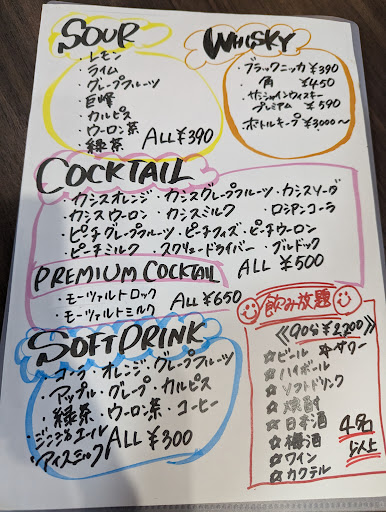 SOUR
・レモン
・ライム
・グレープフルーツ
・巨峰
・カルピス
・ウーロン茶
・緑茶
ALL ¥390
WHISKY
・ブラックニッカ ¥390
・角 ¥450
・サンシャインウイスキー
プレミアム ¥590
・ボトルキープ ¥3000〜
COCKTAIL
・カシスオレンジ・カシスグレープフルーツ・カシスソーダ
・カシスウーロン ・カシスミルク ・ロシアンコーラ
・ピーチグレープフルーツ・ピーチフィズ・ピーチウーロン
・ピーチミルク ・スクリュードライバー ・ブルドック
ALL ¥500
PREMIUM COCKTAIL
・モーツァルトロック
・モーツァルトミルク
ALL ¥650
SOFT DRINK
・コーラ・オレンジ・グレープフルーツ
・アップル・グレープ・カルピス
・緑茶・ウーロン茶・コーヒー
・ジンジャエール
・アイスミルク
ALL ¥300
飲み放題
《90分 ¥2,200》
☆ビール ☆サワー
☆ハイボール
☆ソフトドリンク
☆焼酎
☆日本酒
☆梅酒
☆ワイン
☆カクテル
4名
以上